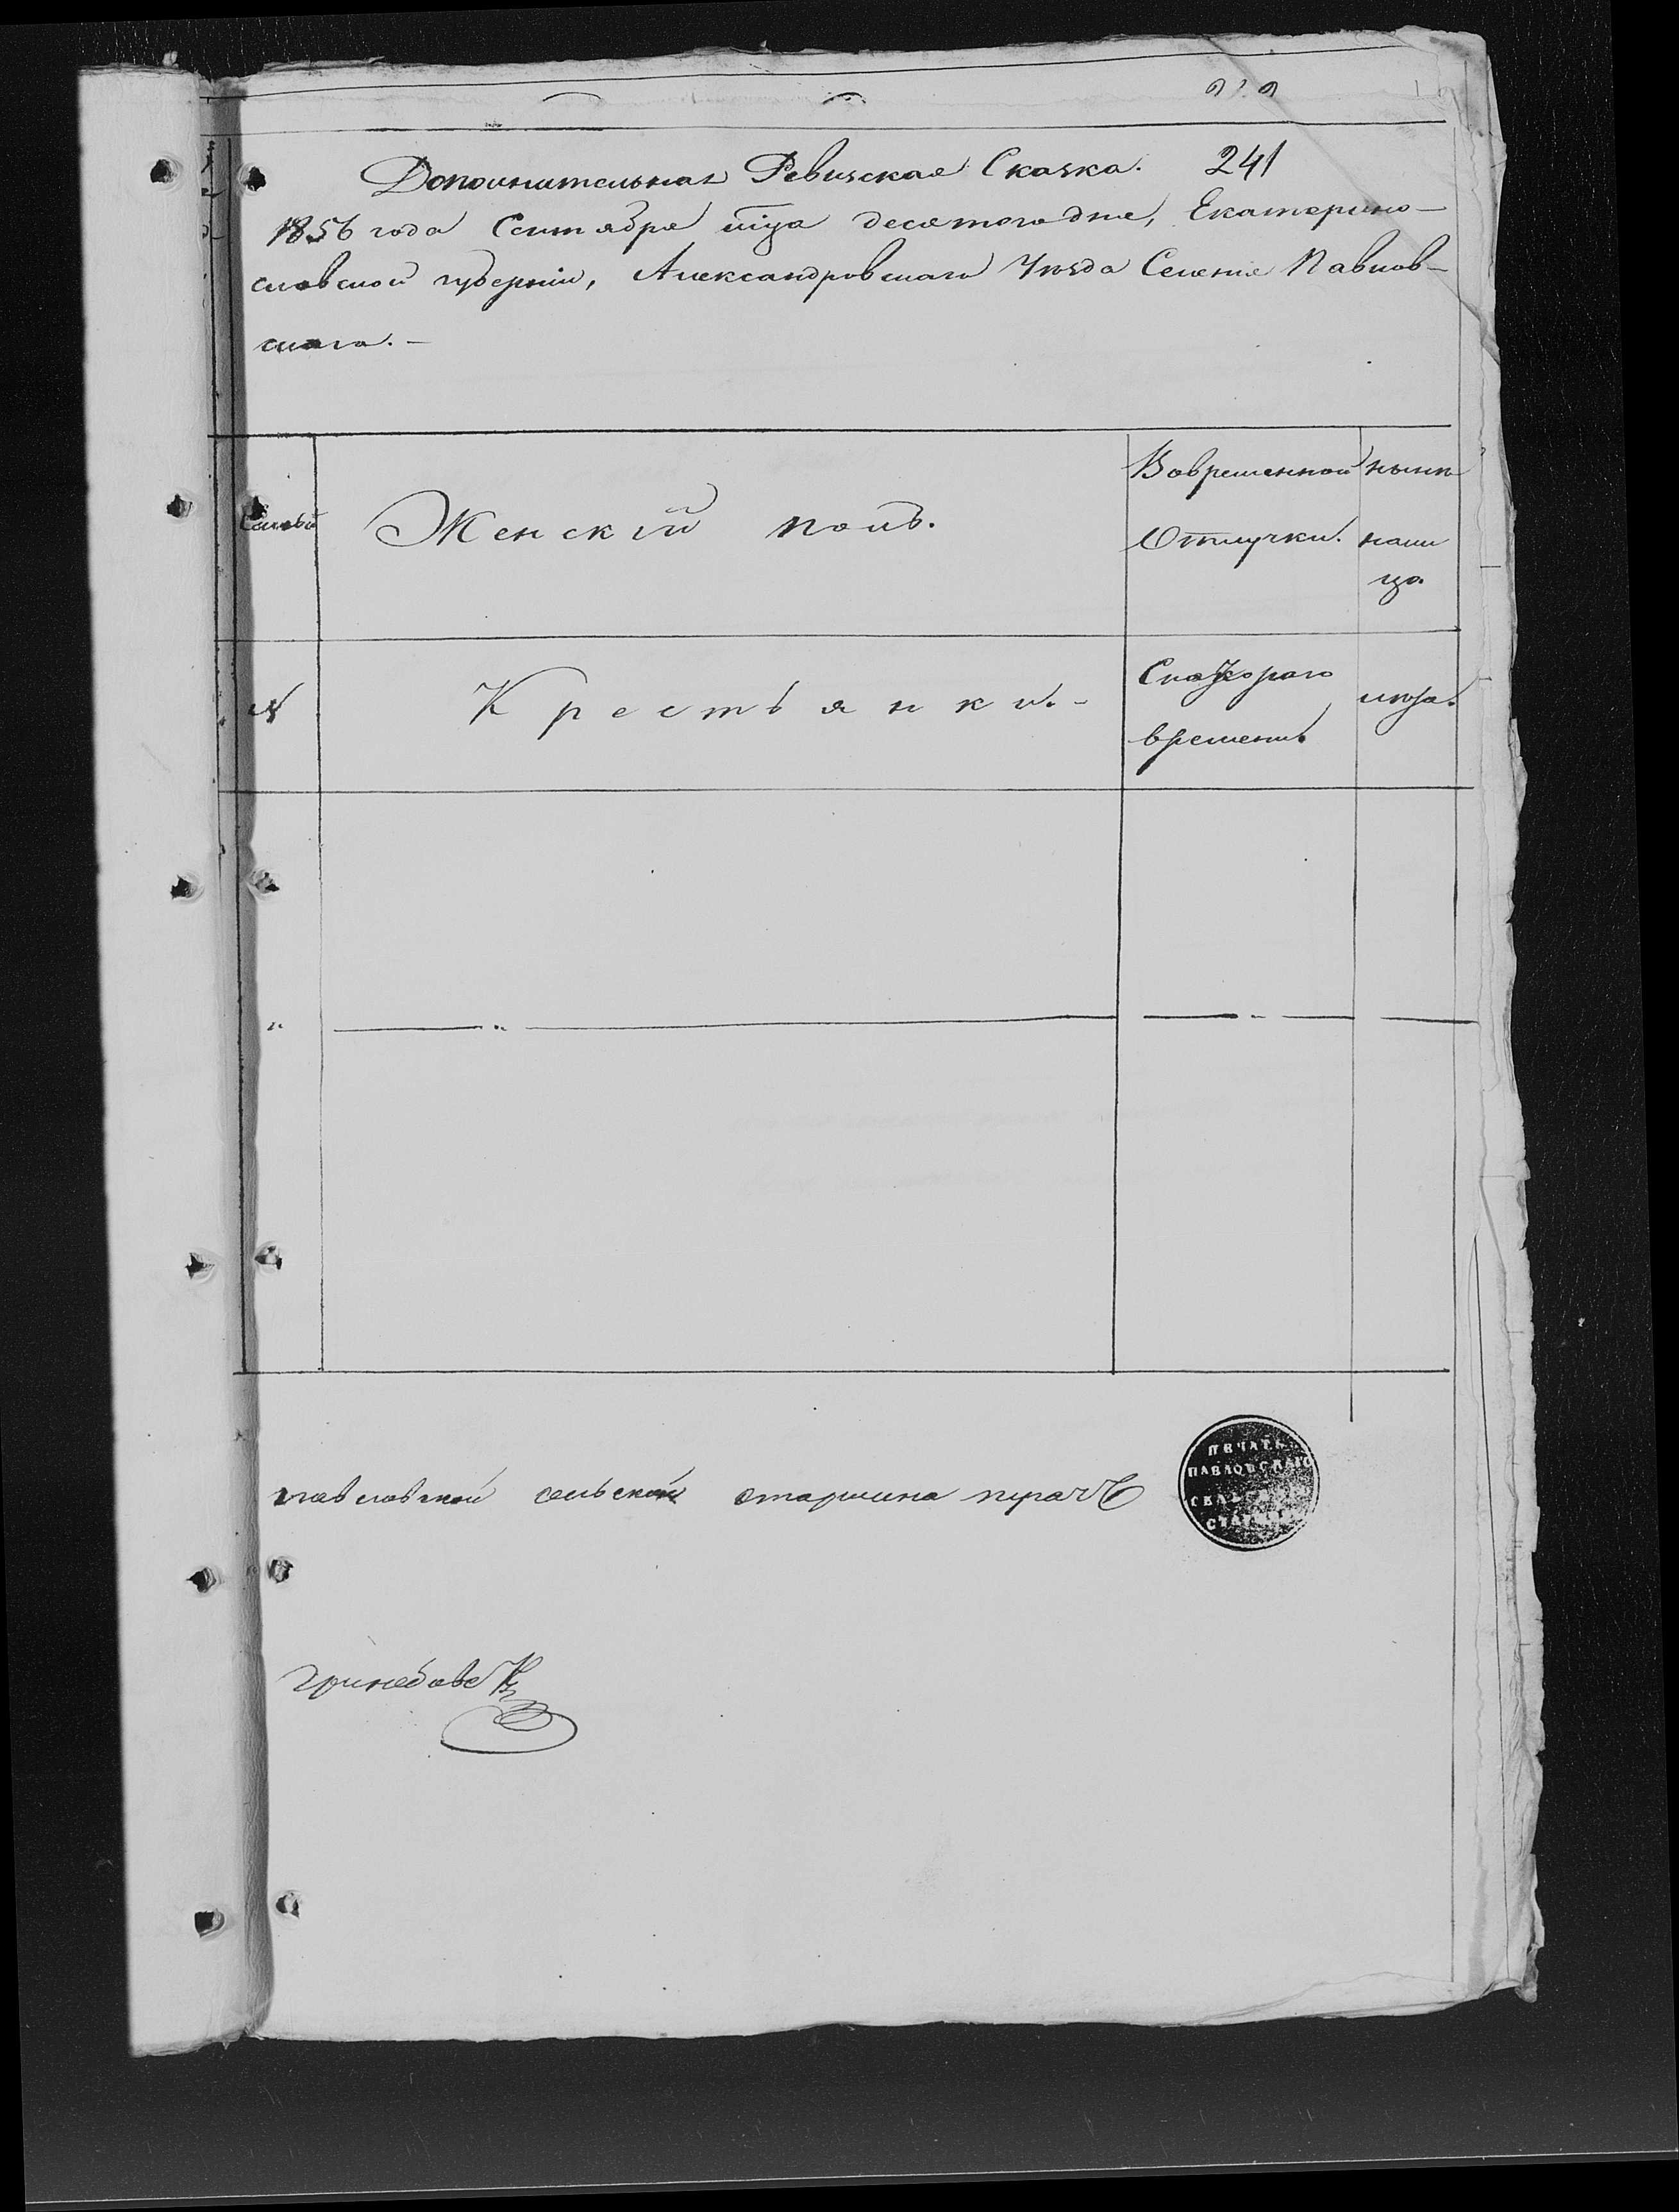 Дополнительная Ревизская Сказка. 241
1856 года Сентября мца десятого дня, Екатерино-
славской губерніи, Александровскаго Уѣзда Селенія Павлов-
скаго.-
Семьи
Женскій полъ.
Во временной
Отлучки.
нынѣ
нали
цо.
№
Крестьянки.-
Съ котораго
времени.
лѣта.
павловской сельский старшина пугачъ
ПЕЧАТЬ
ПАВЛОВСКАГО
СЕЛЬ
СТАРШИ